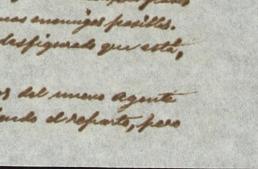 mas enemigos posibles.
desfigurado que está,
del nuevo agente
el reparto, pero